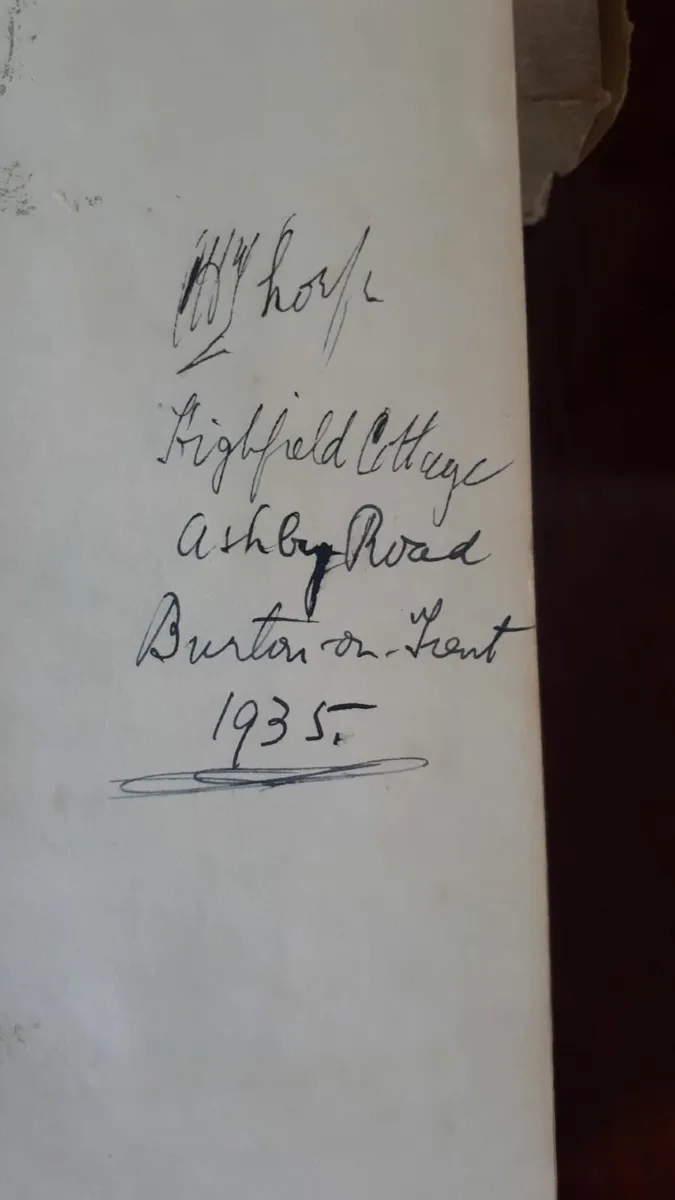 Thorpe
Highfield Cottage
Ashby Road
Burton-on-Trent
1935.